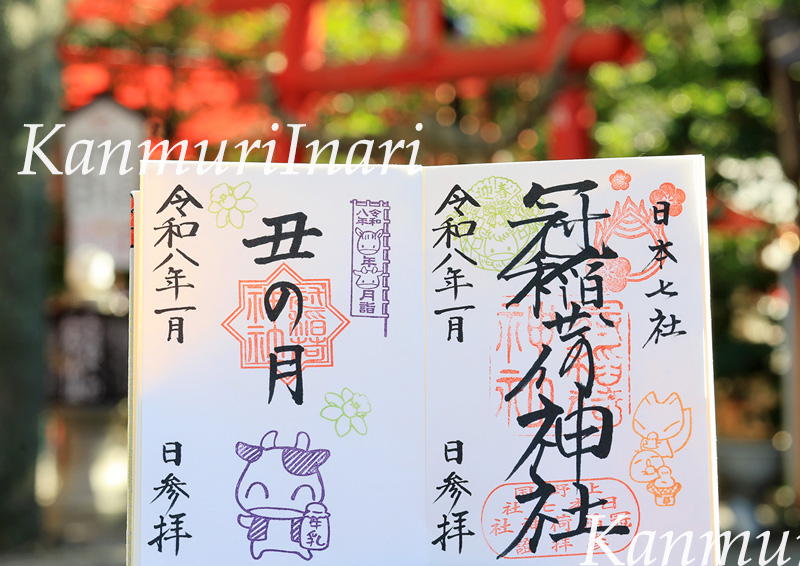 KanmuriInari
日本七社
冠稲荷神社
令和八年一月
日参拝
令和八年
年
月詣
丑の月
牛乳
令和八年一月
日参拝
Kanmu